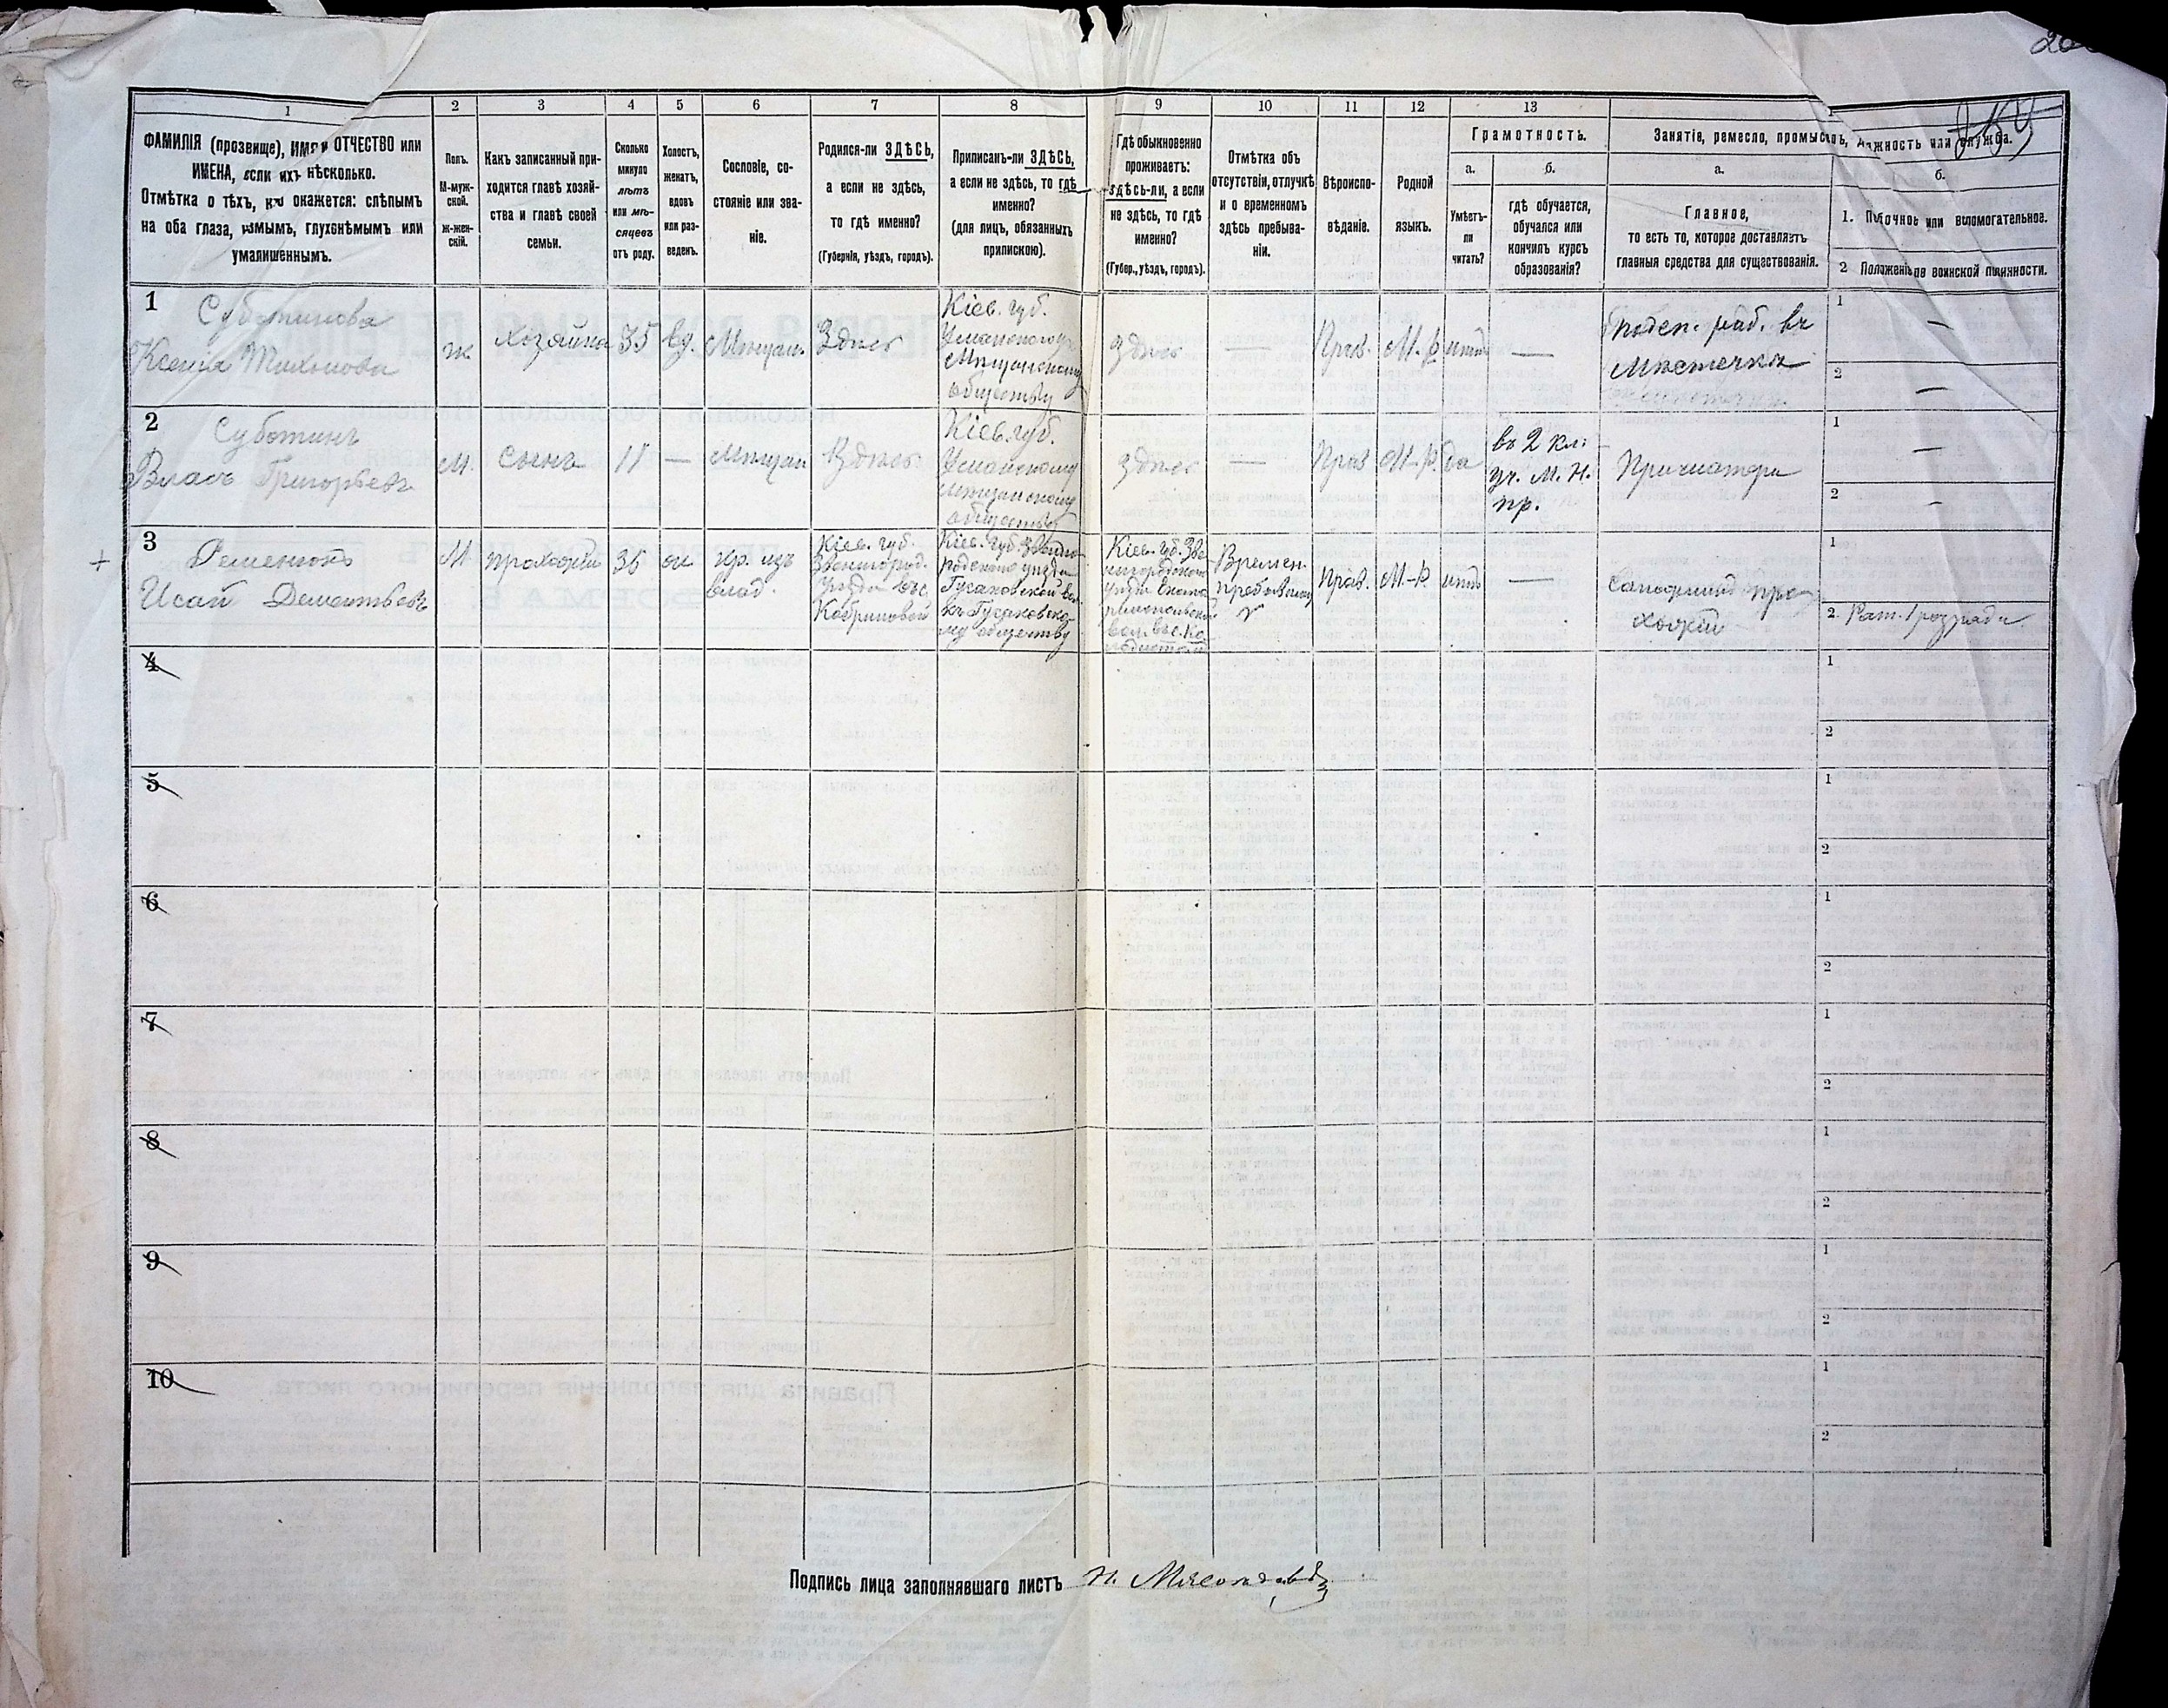 1 2 3 4 5 6 7 8 9 10 11 12 13
ФАМИЛІЯ (прозвище), ИМЯ и ОТЧЕСТВО или
ИМЕНА, если ихъ нѣсколько.
Отмѣтка о тѣхъ, кто окажется: слѣпымъ
на оба глаза, нѣмымъ, глухонѣмымъ или
умалишеннымъ.
Полъ.
М-муж-
ской.
ж-жен-
скій.
Какъ записанный при-
ходится главѣ хозяй-
ства и главѣ своей
семьи.
Сколько
минуло
лѣтъ
или мѣ-
сяцевъ
отъ роду.
Холостъ,
женатъ,
вдовъ
или раз-
веденъ.
Сословіе, со-
стояніе или зва-
ніе.
Родился-ли ЗДѢСЬ,
а если не здѣсь,
то гдѣ именно?
(Губернія, уѣздъ, городъ).
Приписанъ-ли ЗДѢСЬ,
а если не здѣсь, то гдѣ
именно?
(для лицъ, обязанныхъ
припискою).
Гдѣ обыкновенно
проживаетъ:
здѣсь-ли, а если
не здѣсь, то гдѣ
именно?
(Губер., уѣздъ, городъ).
Отмѣтка объ
отсутствіи, отлучкѣ
и о временномъ
здѣсь пребыва-
ніи.
Вѣроиспо-
вѣданіе.
Родной
языкъ.
Грамотность.
а.
Умѣетъ-
ли
читать?
б.
гдѣ обучается,
обучался или
кончилъ курсъ
образованія?
Занятіе, ремесло, промыслъ, должность или служба.
а.
Главное,
то есть то, которое доставляетъ
главныя средства для существованія.
б.
1. Побочное или вспомогательное.
2 Положеніе по воинской повинности.
1
Суботинова
Ксенія Тихонова
ж
хозяйка
35
вд.
Мѣщан.
Здѣсь
Кіев. губ.
Уманскому
Мѣщанскому
обществу
здѣсь
—
Прав.
М-р
нѣтъ
—
Поден. раб. въ
Мѣстечкѣ
1
—
2
—
2
Суботинъ
Власъ Григорьевъ
М.
сынъ
11
—
Мѣщан
Здѣсь
Кіев. губ.
Уманскому
мѣщанскому
обществу
здѣсь
—
Прав
М-р.
да
въ 2 кл.
уч. М. Н.
пр.
При матери
1
—
2
—
+
3
Исай Дементьевъ
М.
прохожій
36
кр. изъ
влад.
Кіев. губ.
Звенигород.
уѣзда въ с.
Кобриновой
Кіев. губ. Звени-
родскаго уѣзда
Гусаковской вол.
къ Гусаковско-
му обществу
Кіев. губ. Зве
нигородскаго
уѣзда
вол. въ с.
Времен.
пребываніе
Прав.
М-р.
нѣтъ
—
1
2. Рат. 1 разряда
4
1
2
5
1
2
6
1
2
7
1
2
8
1
2
9
1
2
10
1
2
Подпись лица заполнявшаго листъ